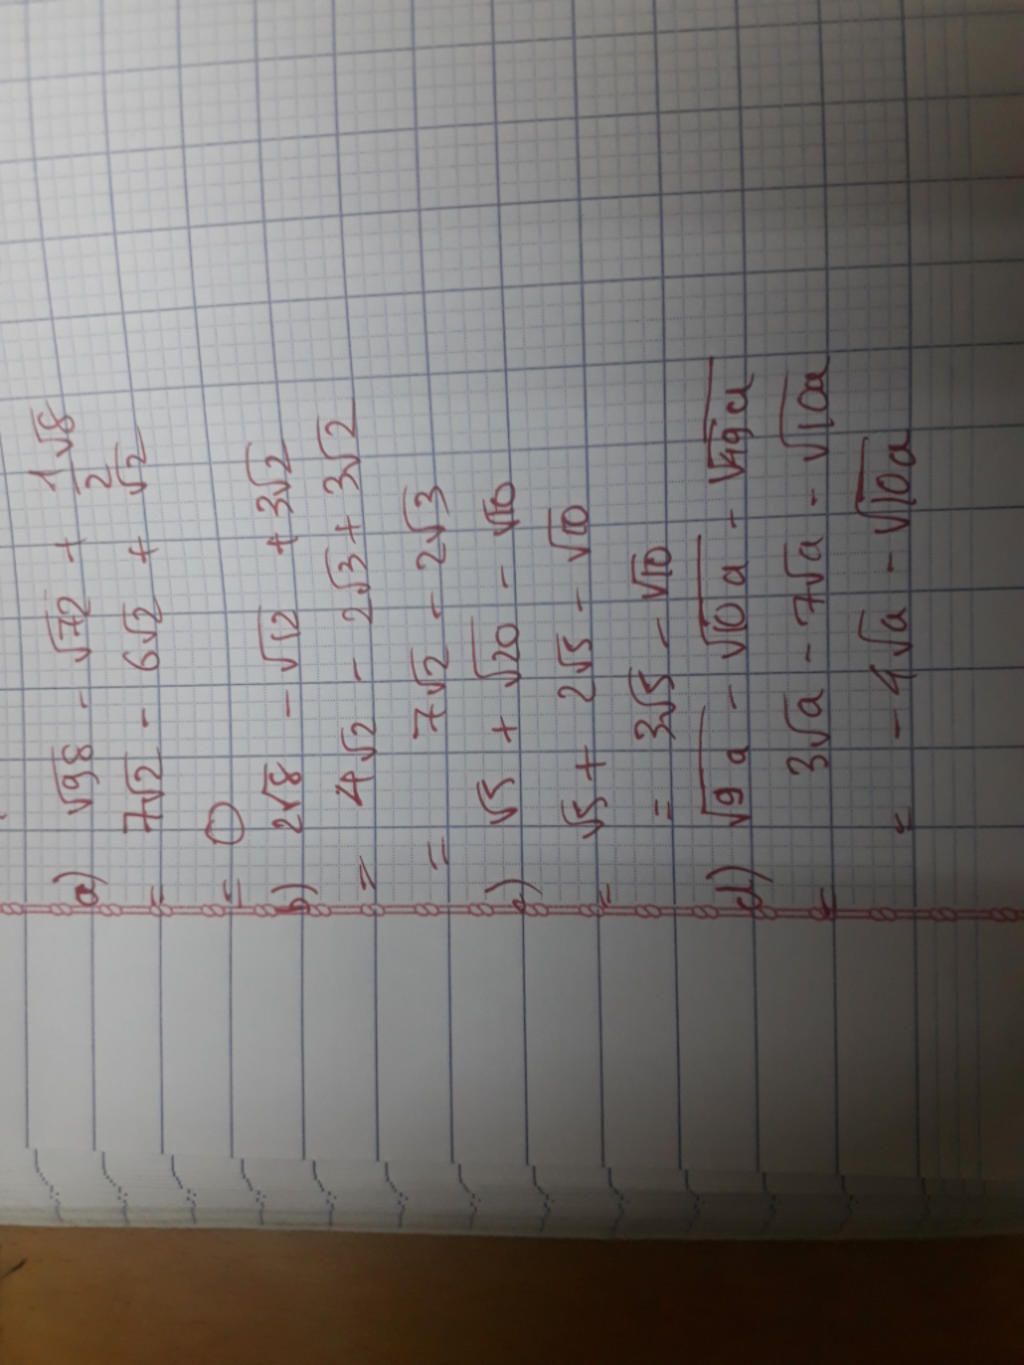 a) √98 - √72 + 1/2 √8
= 7√2 - 6√2 + √2
= 0
b) 2√8 - √12 + 3√2
= 4√2 - 2√3 + 3√2
= 7√2 - 2√3
c) √5 + √20 - √10
= √5 + 2√5 - √10
= 3√5 - √10
d) √9a - √10a - √49a
= 3√a - 7√a - √10a
= - 4√a - √10a